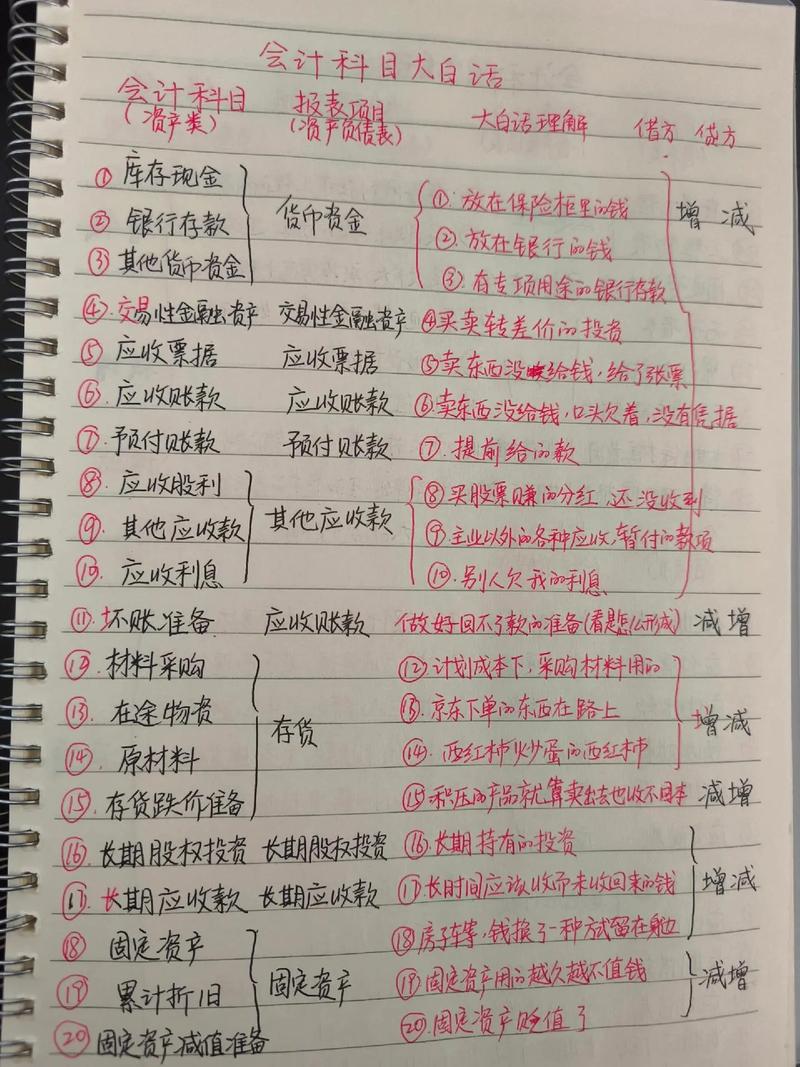 会计科目大白话
会计科目 报表项目 大白话理解 借方 贷方
(资产类) (资产负债表)
① 库存现金 ①. 放在保险柜里的钱
② 银行存款 货币资金 ②. 放在银行的钱 增 减
③ 其他货币资金 ③. 有专项用途的银行存款
④. 交易性金融资产 交易性金融资产 ④买卖转差价的投资
⑤ 应收票据 应收票据 ⑤卖东西没给钱,给了张票
⑥. 应收账款 应收账款 ⑥卖东西没给钱,口头欠着,没有凭据
⑦预付账款 预付账款 ⑦. 提前给的款
⑧. 应收股利 ⑧买股票赚的分红,还没收到
⑨. 其他应收款 其他应收款 ⑨.主业以外的各种应收,暂付的款项
⑩. 应收利息 ⑩.别人欠我的利息
⑪.坏账准备 应收账款 做好回不了款的准备(看是怎么形成) 减 增
⑫.材料采购 ⑫.计划成本下,采购材料用的
⑬. 在途物资 存货 ⑬.京东下单的东西在路上 增减
⑭. 原材料 ⑭. 西红柿炒蛋的西红柿
⑮.存货跌价准备 ⑮积压的产品就算卖出去也收不回本 减增
⑯.长期股权投资 长期股权投资 ⑯.长期持有的投资
⑰.长期应收款 长期应收款 ⑰长时间应该收而未收回来的钱 增减
⑱ 固定资产 ⑱房子车等,钱换了一种方式留在身边
⑲ 累计折旧 固定资产 ⑲固定资产用的越久越不值钱 减增
⑳固定资产减值准备 ⑳.固定资产贬值了